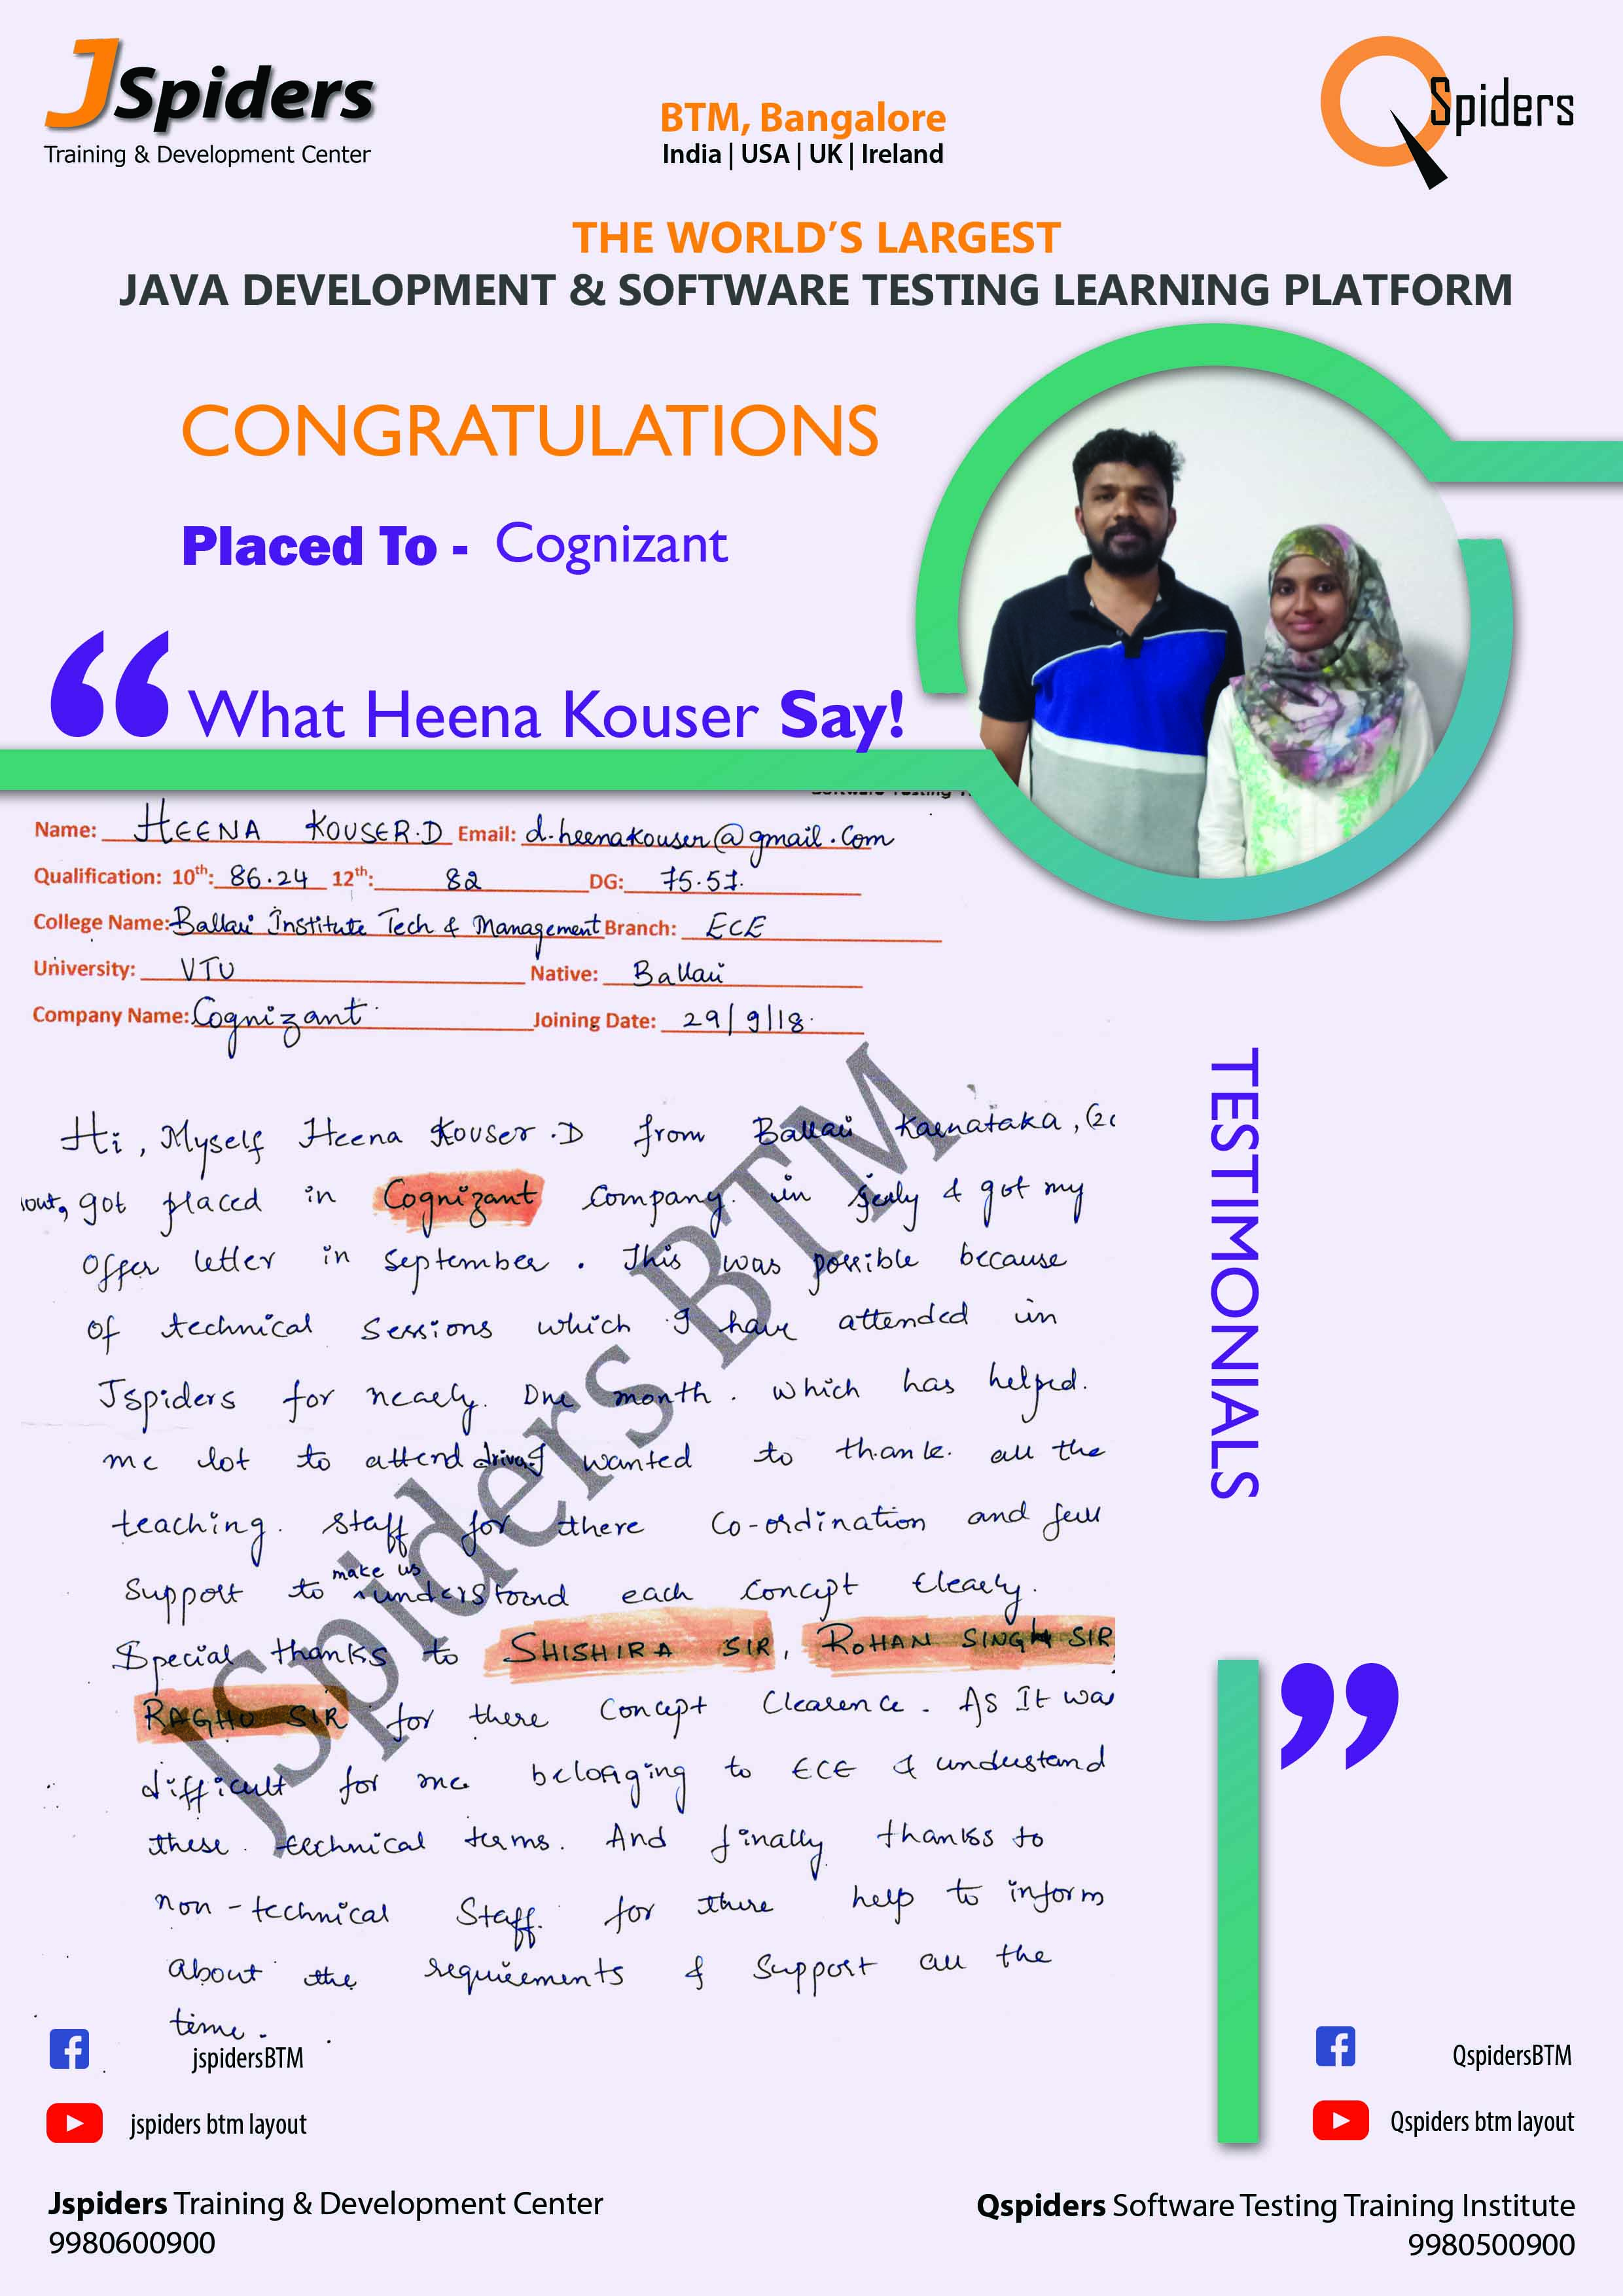 JSpiders
Training & Development Center
BTM, Bangalore
India | USA | UK | Ireland
QSpiders
THE WORLD'S LARGEST
JAVA DEVELOPMENT & SOFTWARE TESTING LEARNING PLATFORM
CONGRATULATIONS
Placed To - Cognizant
“ What Heena Kouser Say!
Name: HEENA KOUSER.D Email: d.heenakouser@gmail.com
Qualification: 10th: 86.24 12th: 82 DG: 75.51.
College Name: Ballari Institute Tech & Management Branch: ECE
University: VTU Native: Ballari
Company Name: Cognizant Joining Date: 29/9/18.
Hi, Myself Heena Kouser.D from Ballari Karnataka, (20
out, got placed in Cognizant company. in & got my
offer letter in september. This was possible because
of technical sessions which I have attended in
Jspiders for nearly. One month. which has helped.
me lot to attend wanted to thank. all the
teaching. staff for there co-ordination and full
support to make us understand each concept clearly.
Special thanks to SHISHIRA SIR, ROHAN SINGH SIR
RAGHU SIR for there concept clearence. As It was
difficult for me belonging to ECE & understand
these technical terms. And finally thanks to
non-technical staff. for there help to inform
about the requirements & support all the
time.
JSpiders BTM
TESTIMONIALS
”
jspidersBTM
jspiders btm layout
QspidersBTM
Qspiders btm layout
Jspiders Training & Development Center
9980600900
Qspiders Software Testing Training Institute
9980500900